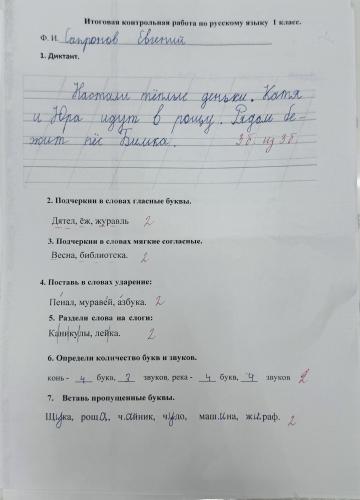 Итоговая контрольная работа по русскому языку 1 класс.
Ф. И. Сапронов Евгений
1. Диктант.
Настали тёплые деньки. Катя
и Юра идут в рощу. Рядом бе-
жит пёс Бимка. 3 б. из 3 б.
2. Подчеркни в словах гласные буквы.
Дятел, ёж, журавль 2
3. Подчеркни в словах мягкие согласные.
Весна, библиотека. 2
4. Поставь в словах ударение:
Пена́л, мураве́й, а́збука. 2
5. Раздели слова на слоги:
Ка|ни|ку|лы, лей|ка. 2
6. Определи количество букв и звуков.
конь - 4 букв, 3 звуков, река - 4 букв, 4 звуков 2
7. Вставь пропущенные буквы.
Щука, роща, ч.айник, чуло, маш.ина, жираф. 2